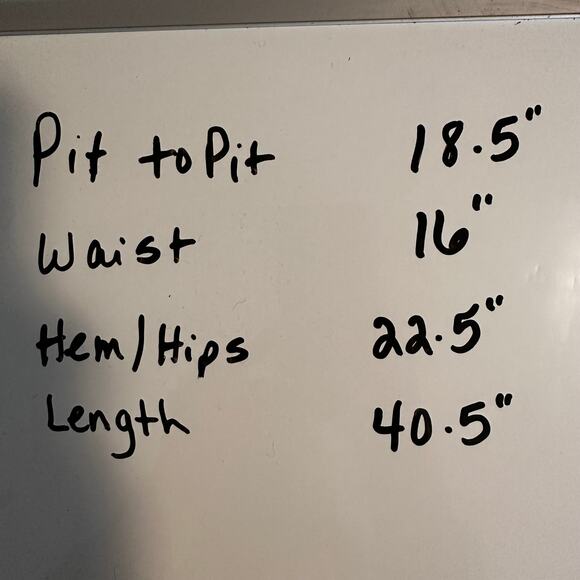 Pit to Pit 18.5"
Waist 16"
Hem/Hips 22.5"
Length 40.5"